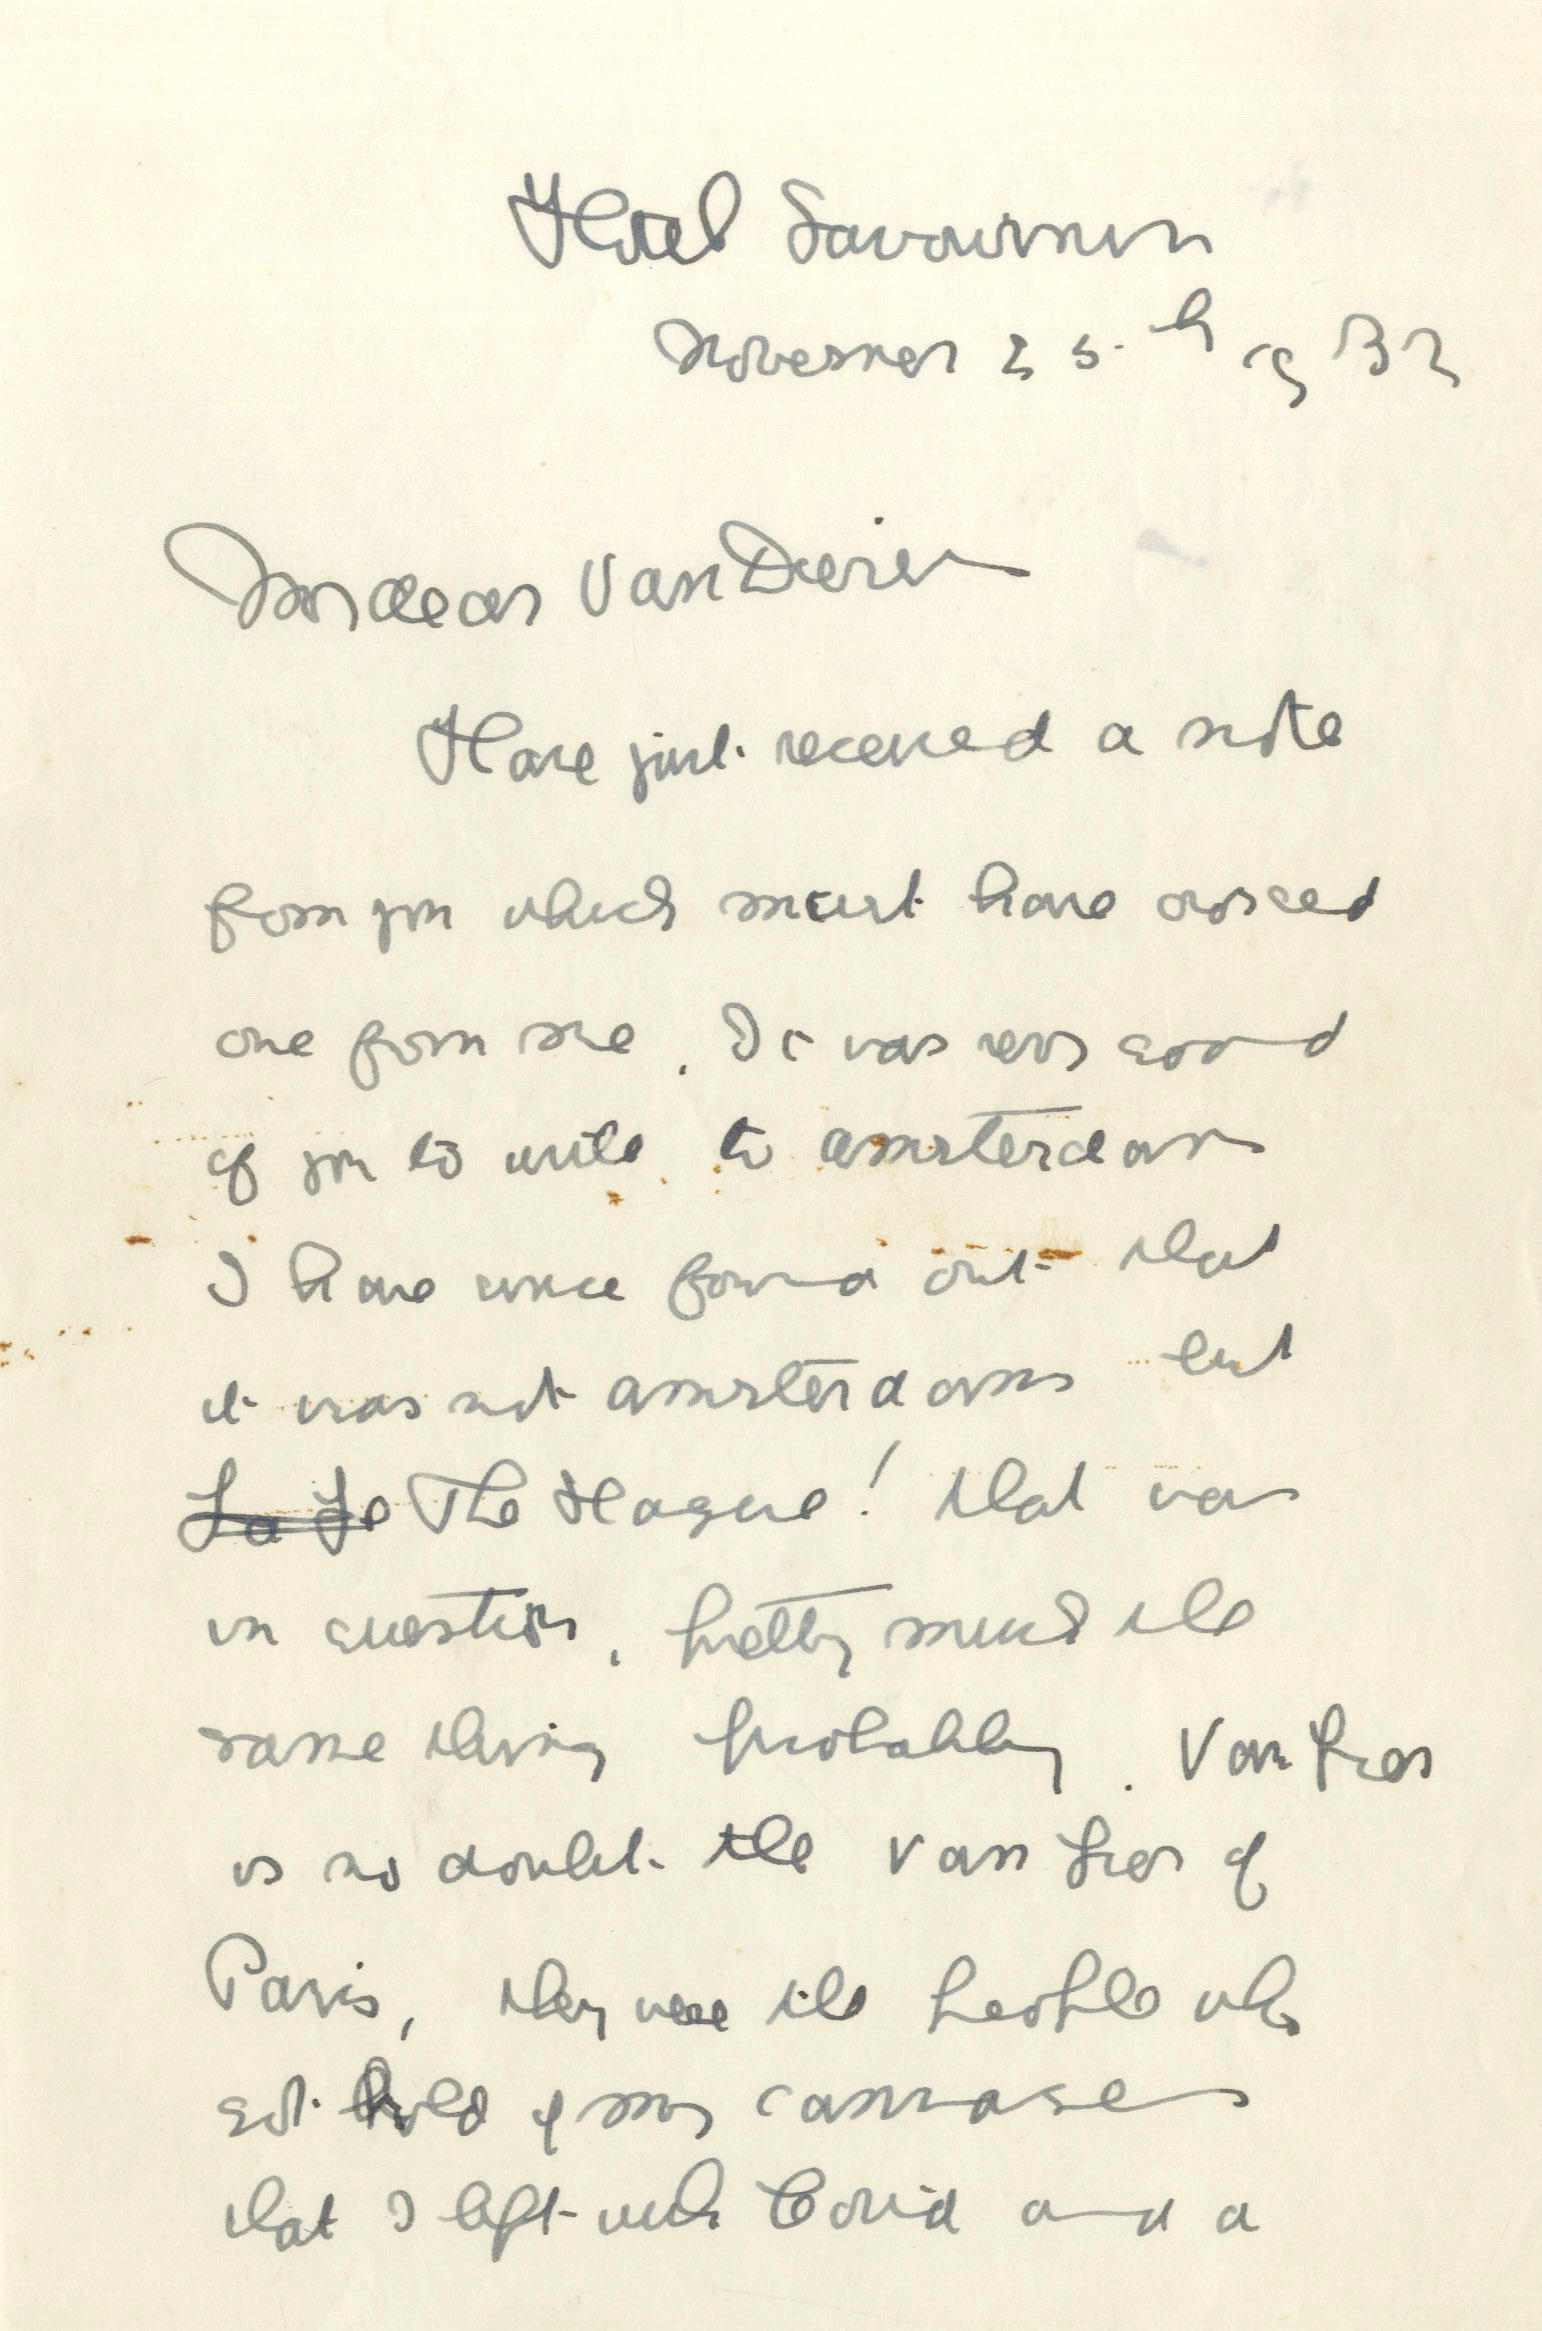 Hotel Savournin
November 25th 1932
My dear Van Dieren
Have just received a note
from you which must have crossed
one from me. It was very good
of you to write to Amsterdam
I have since found out that
it was not Amsterdam but
La Je The Hague! that was
in question, pretty much the
same thing probably. Van Lier
is no doubt the Van Lier of
Paris, they were the people who
got hold of my canvases
that I left with Bovid and a